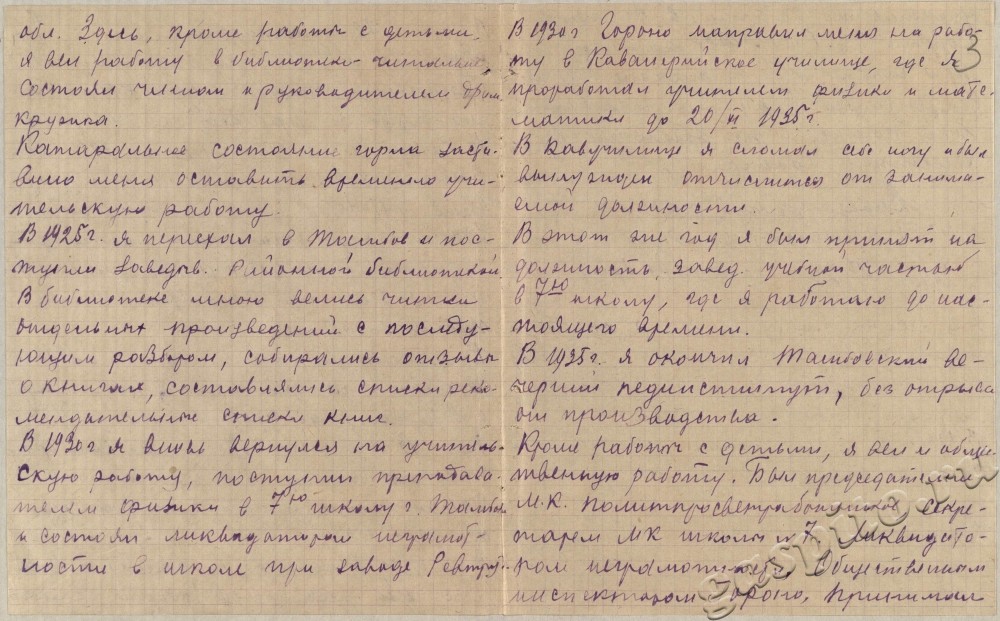 обл. Здесь, кроме работы с детьми,
я вел работу в библиотеке-читальне,
состоял членом и руководителем драм.
кружка.
Катаральное состояние горла заста-
вило меня оставить временно учи-
тельскую работу.
В 1925 г. я переехал в Тамбов и пос-
тупил заведыв. Районной библиотекой.
В библиотеке мною велись читки
отдельных произведений с последу-
ющим разбором, собирались отзывы
о книгах, составлялись списки реко-
мендательные списки книг.
В 1930 г я вновь вернулся на учитель-
скую работу, поступил преподава-
телем физики в 7ую школу г. Тамбов
и состоял ликвидатором неграмот-
ности в школе при заводе Ревтруд.
3
В 1930 г Гороно направил меня на рабо-
ту в Кавалерийское училище, где я
проработал учителем физики и мате-
матики до 20/VI 1935 г.
В Кавучилище я сломал себе ногу и был
вынужден отчислиться от занима-
емой должности.
В этот же год я был принят на
должность завед. учебной частью
в 7ую школу, где я работаю до нас-
тоящего времени.
В 1935 г. я окончил Тамбовский ве-
черний пединститут, без отрыва
от производства.
Кроме работы с детьми, я вел и общес-
твенную работу. Был председателем
М.К. политпросветработников, секре-
тарем МК школы № 7, ликвидато-
ром неграмотности, общественным
инспектором гороно. Принимал